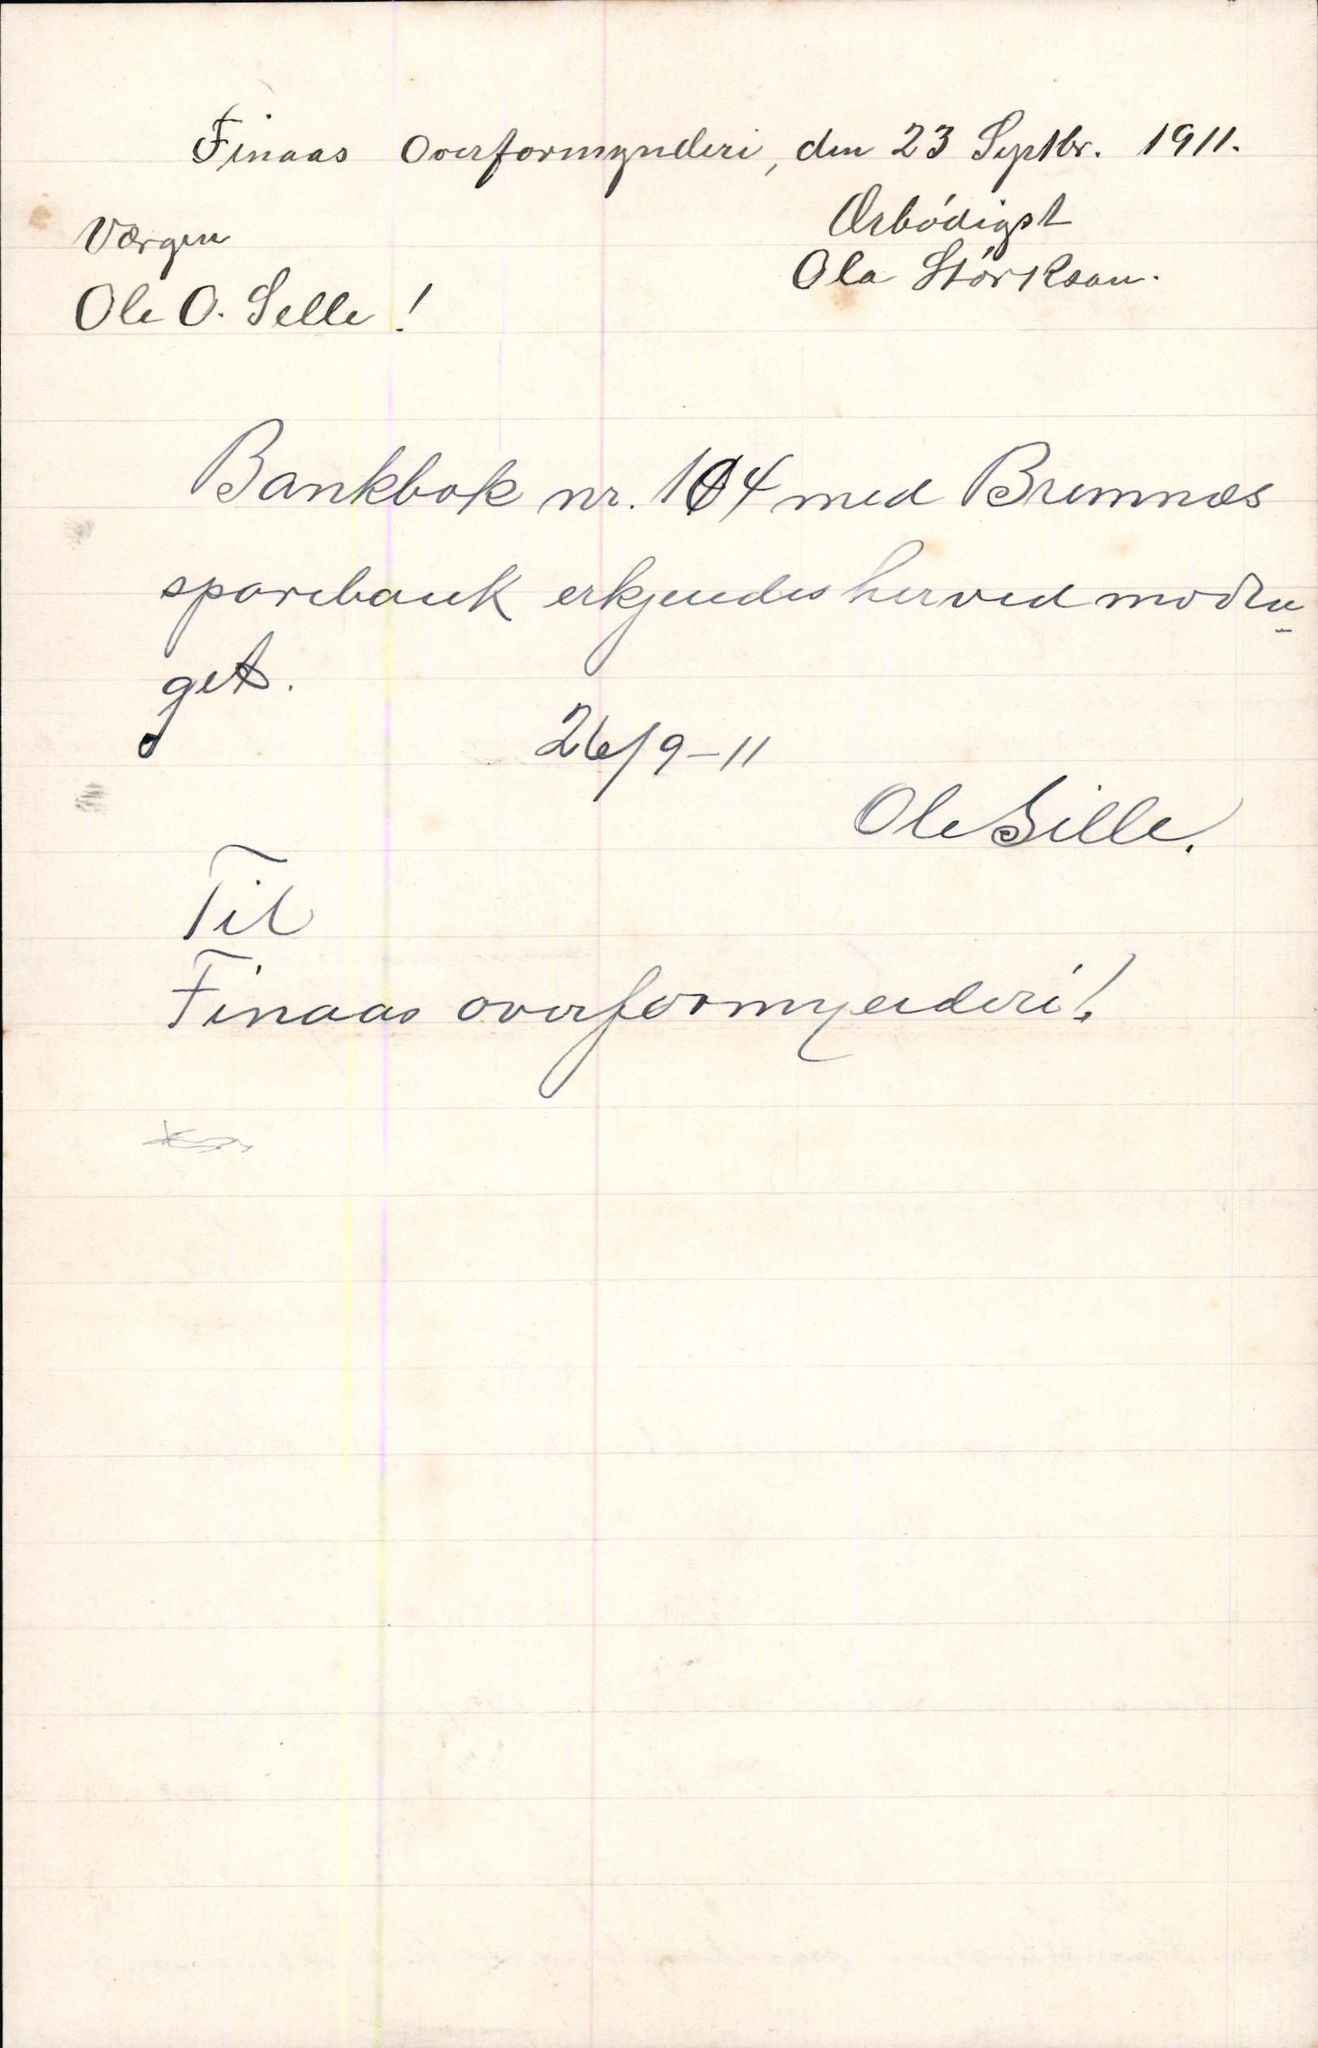 Finaas Overformynderi, den 23 Septbr. 1911.
Ærbödigst
Ola Störkson.
Værgen
Ole O. Selle!
Bankbok nr. 104 med Bremnæs
sparebank erkjendes herved modta
get.
26/9-11
Ole Selle.
Til
Finaas overformynderi!